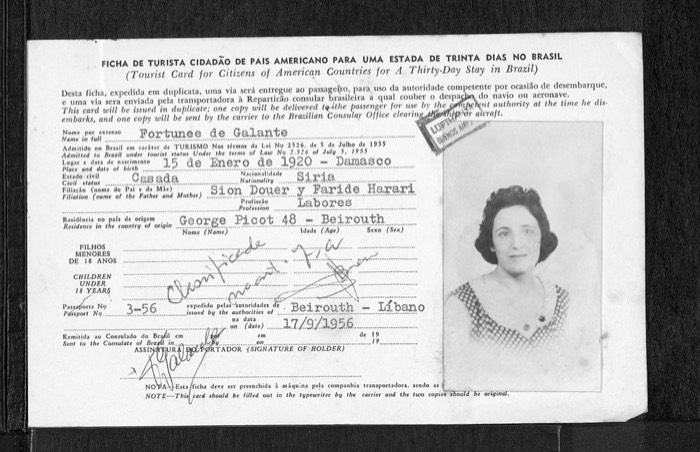 FICHA DE TURISTA CIDADÃO DE PAIS AMERICANO PARA UMA ESTADA DE TRINTA DIAS NO BRASIL
(Tourist Card for Citizens of American Countries for A Thirty-Day Stay in Brazil)
Desta ficha, expedida em duplicata, uma via será entregue ao passageiro, para uso da autoridade competente por ocasião de desembarque,
e uma via será enviada pela transportadora à Repartición consular brasileira a qual couber o despacho do navio ou aeronave.
This card will be issued in duplicate; one copy will be delivered to the passenger for use by the competent authority at the time he dis-
embarks, and one copy will be sent by the carrier to the Brazilian Consular Office clearing the ship or aircraft.
Nome por extenso
Name in full Fortunee de Galante
Admitido no Brasil em caráter de TURISMO Nos termos da Lei No 2526, de 5 de Julho de 1955
Admitted to Brazil under tourist status Under the terms of Law No 2.526 of July 5, 1955
Lugar e data de nascimento
Place and date of birth 15 de Enero de 1920 - Damasco
Estado civil
Civil status Casada Nacionalidade
Nationality Siria
Filiação (nome do Pai e da Mãe)
Filiation (name of the Father and Mother) Sion Douer y Faride Harari
Profissão
Profession Labores
Residência no país de origem
Residence in the country of origin George Picot 48 - Beirouth
Nome (Name) Idade (Age) Sexo (Sex)
FILHOS
MENORES
DE 18 ANOS
CHILDREN
UNDER
18 YEARS
Clasificade
Passaporte No
Pasport No 3-56 expedido pelas autoridades de
issued by the authorities of Beirouth - Líbano
na data
on (date) 17/9/1956
Remitida ao Consulado do Brasil em em de 19
Sent to the Consulate of Brazil in on 19
ASSINATURA DO PORTADOR (SIGNATURE OF HOLDER)
Galante
NOTA—Esta ficha deve ser preenchida à máquina pela companhia transportadora, sendo as
NOTE—This card should be filled out in the typewriter by the carrier and the two copies should be original.